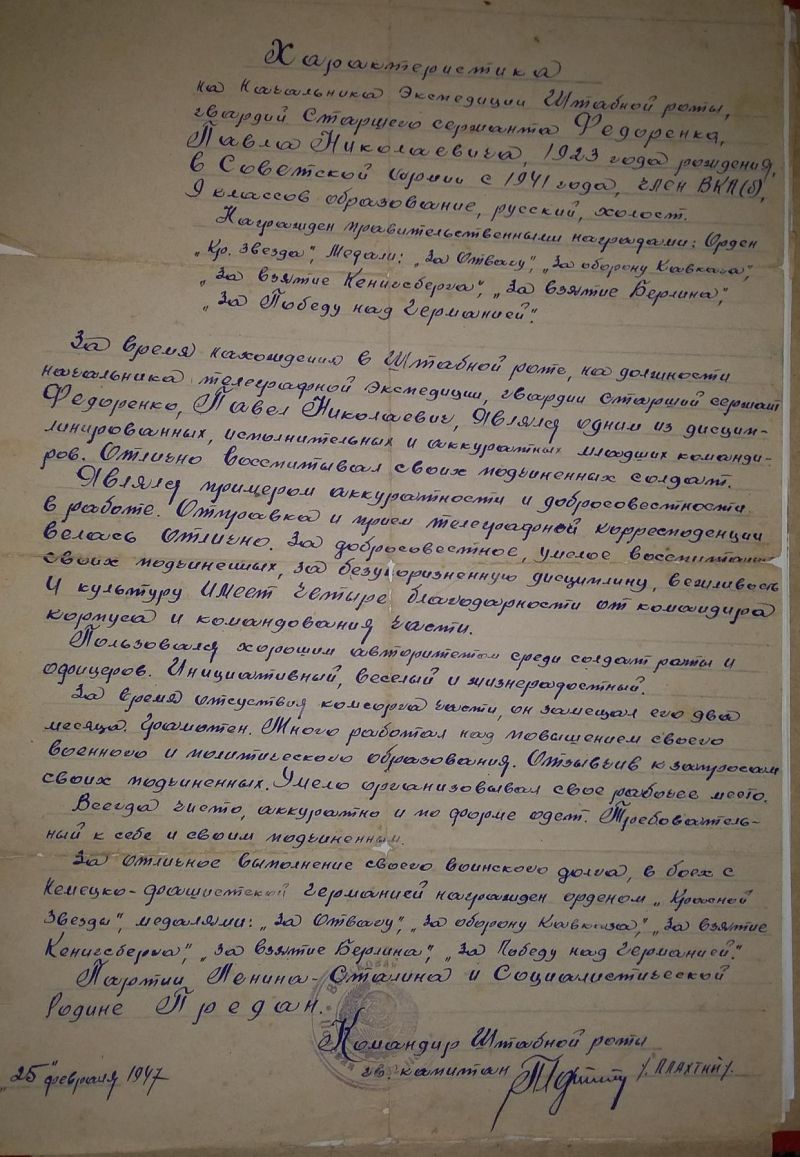 Характеристика
на начальника Экспедиции Штабной роты,
гвардий Старшего сержанта Федоренко,
Павла Николаевича, 1923 года рождения,
в Советской Армии с 1941 года, член ВКП(б),
9 классов образование, русский, холост.
Награжден правительственными наградами: Орден
„Кр. Звезда“, Медали: „За Отвагу“, „За оборону Кавказа“,
„За взятие Кенигсберга“, „За взятие Берлина“,
„За Победу над Германией“.
За время нахождения в Штабной роте, на должности
начальника телеграфной Экспедиции, гвардии Старший сержант
Федоренко, Павел Николаевич, Являлся одним из дисцип-
линированных, исполнительных и аккуратных младших команди-
ров. Отлично воспитывал своих подчиненных солдат.
Являлся примером аккуратности и добросовестности
в работе. Отправка и прием телеграфной корреспонденции
велась Отлично. За добросовестное, умелое воспитание
своих подчиненных, за безукоризненную дисциплину, вежливость
и культуру имеет четыре благодарности от командира
корпуса и командования части.
Пользовался хорошим авторитетом среди солдат роты и
офицеров. Инициативный, веселый и жизнерадостный.
За время отсуствия комсорга части, он замещал его два
месяца. Грамотен. Много работал над повышением своего
военного и политического образования. Отзывчив к запросам
своих подчиненных. Умело организовывал свое рабочее место.
Всегда чисто, аккуратно и по форме одет. Требователь-
ный к себе и своим подчиненным.
За отличное выполнение своего воинского долга, в боях с
Немецко-фашистской Германией награжден орденом „Красной
Звезды“, медалями: „За Отвагу“, „За оборону Кавказа“, „За взятие
Кенигсберга“, „За взятие Берлина“, „За Победу над Германией“.
Партии Ленина-Сталина и Социалистической
Родине Предан.
Командир Штабной роты
гв. капитан /Плахтий/.
„25“ февраля 1947